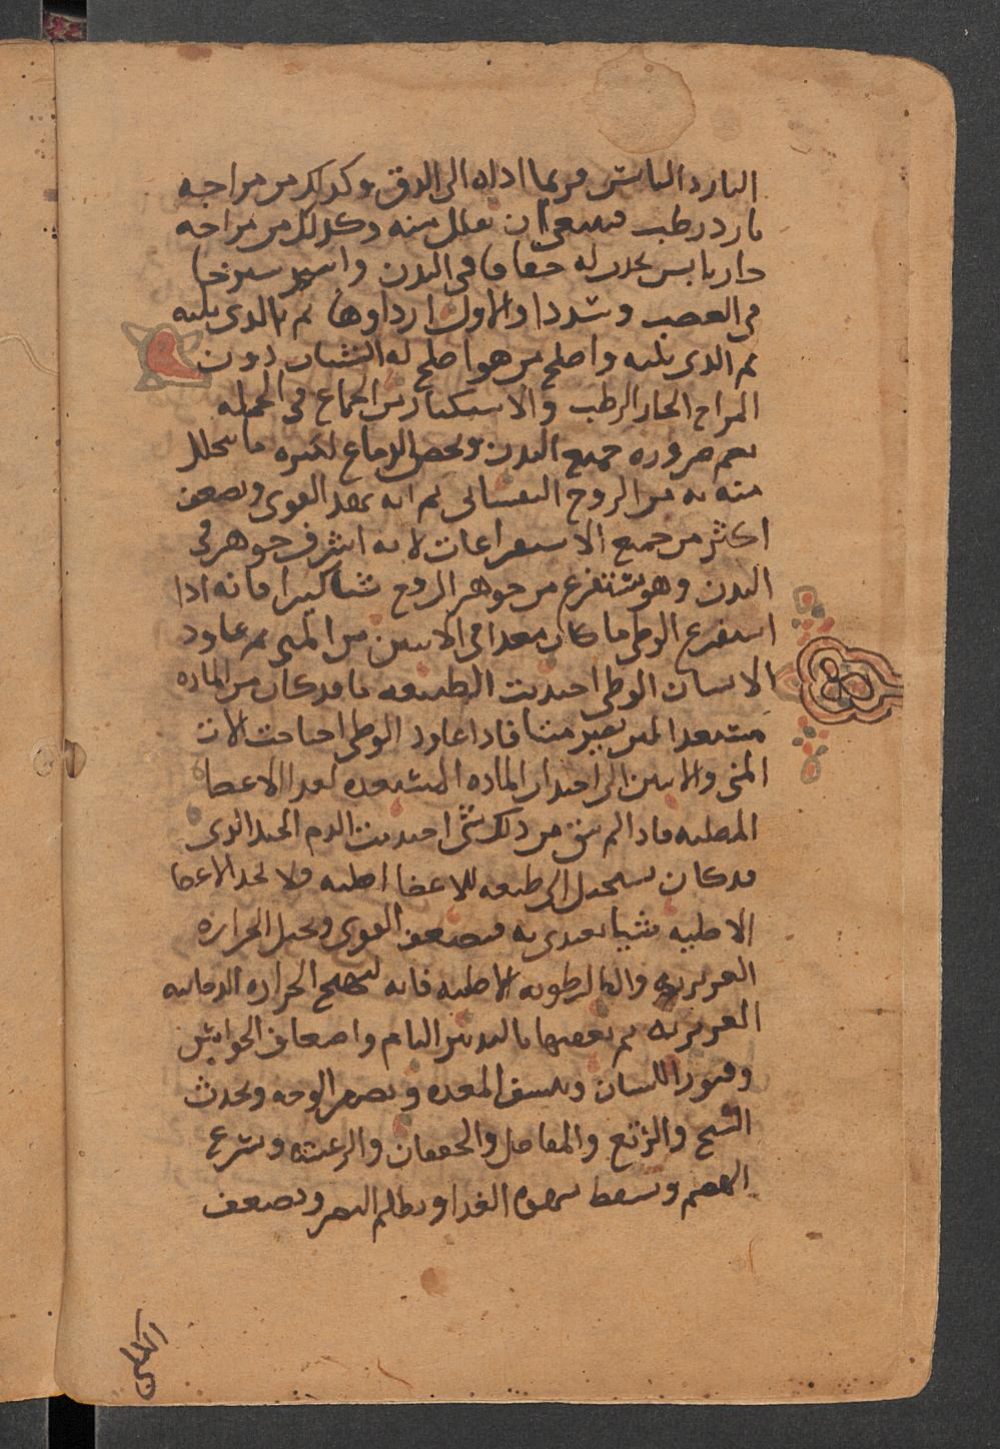 البارد اليابس فربما اداه الى الدق وكدلك من مزاجه
بارد رطب فينبغي ان يقلل منه وكدلك من مزاجه
حار يابس يحدث له جفافا في البدن واسترخا
في العصب وشددا والاول ارداوها ثم الدى يليه
ثم الدى يليه واصلح من هو اصلح له الشباب دون
المزاج الحار الرطب والاستكثار من الجماع في الجمله
يعم ضروره جميع البدن ويخص الدماغ لكثره ما يتحلل
منه به من الروح النفسانى ثم انه يهد القوى ويضعف
اكثر من جميع الاستفراغات لانه اشرف جوهر فى
البدن وهو يستفرغ من جوهر الروح شيا كثيرا فانه ادا
استفرغ الوطى ما كان معدا فى الانثيين من المنى ثم عاود
الانسان الوطى اجتدبت الطبيعه ما قد كان من الماده
مستعدا لان يصير منيا فادا عاود الوطى احتاجت الات
المنى والانثيين الى اجتداب الماده المستعده لغدا الاعضا
الاصليه فادا لم يبق من دلك شى اجتدبت الدم الجيد الدى
قد كان يستحيل الى طبيعه للاعضا اصليه فلا تجد الاعضا
الاصليه شيا تغتدى به فتضعف القوى وتحيل الحراره
الغريزيه والى الرطوبه الاصليه فانه لتهيج الحراره الدخانيه
الغريزيه ثم يعقبها بالتبريد التام واضعاف الحواس
وفتور اللسان وينسف المعده ويصفر الوجه ويحدث
التشنج والمفاصل والخفقان والرعشه ويسرع
الهضم ويسقط شهوه الغدا ويظلم البصر ويضعف